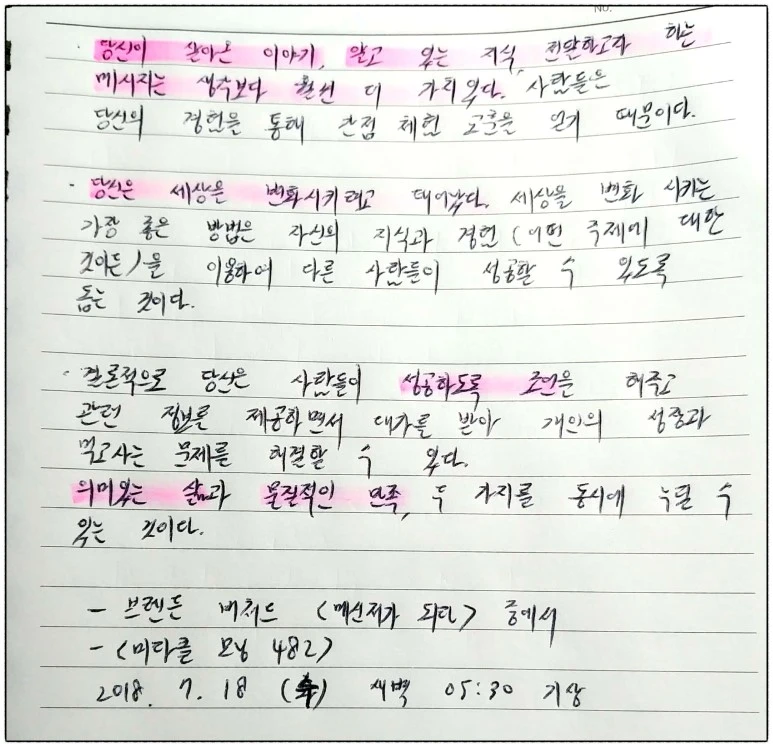 NO.
· 당신이 살아온 이야기, 알고 있는 지식, 전달하고자 하는
메시지는 생각보다 훨씬 더 가치있다. 사람들은
당신의 경험을 통해 간접 체험 교훈을 얻기 때문이다.
· 당신은 세상을 변화시키려고 태어났다. 세상을 변화 시키는
가장 좋은 방법은 자신의 지식과 경험 (어떤 주제에 대한
것이든)을 이용하여 다른 사람들이 성공할 수 있도록
돕는 것이다.
· 결론적으로 당신은 사람들이 성공하도록 조언을 해주고
관련 정보를 제공하면서 대가를 받아 개인의 성장과
먹고사는 문제를 해결할 수 있다.
의미있는 삶과 물질적인 만족, 두 가지를 동시에 누릴 수
있는 것이다.
- 브렌든 버처드 <메신저가 되라> 중에서
- <미라클 모닝 482>
2018. 7. 18 (수) 새벽 05:30 기상